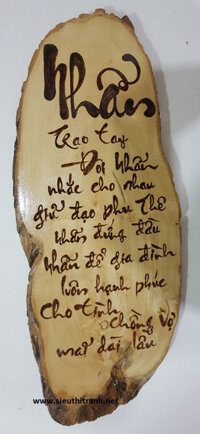 Nhẫn
Trao tay
Đôi nhẫn
nhắc cho nhau
giữ đạo phu thê
nhẫn đứng đầu
Nhẫn để gia đình
luôn hạnh phúc
cho tình
chồng vợ
mãi dài lâu
www.sieuthitranh.net